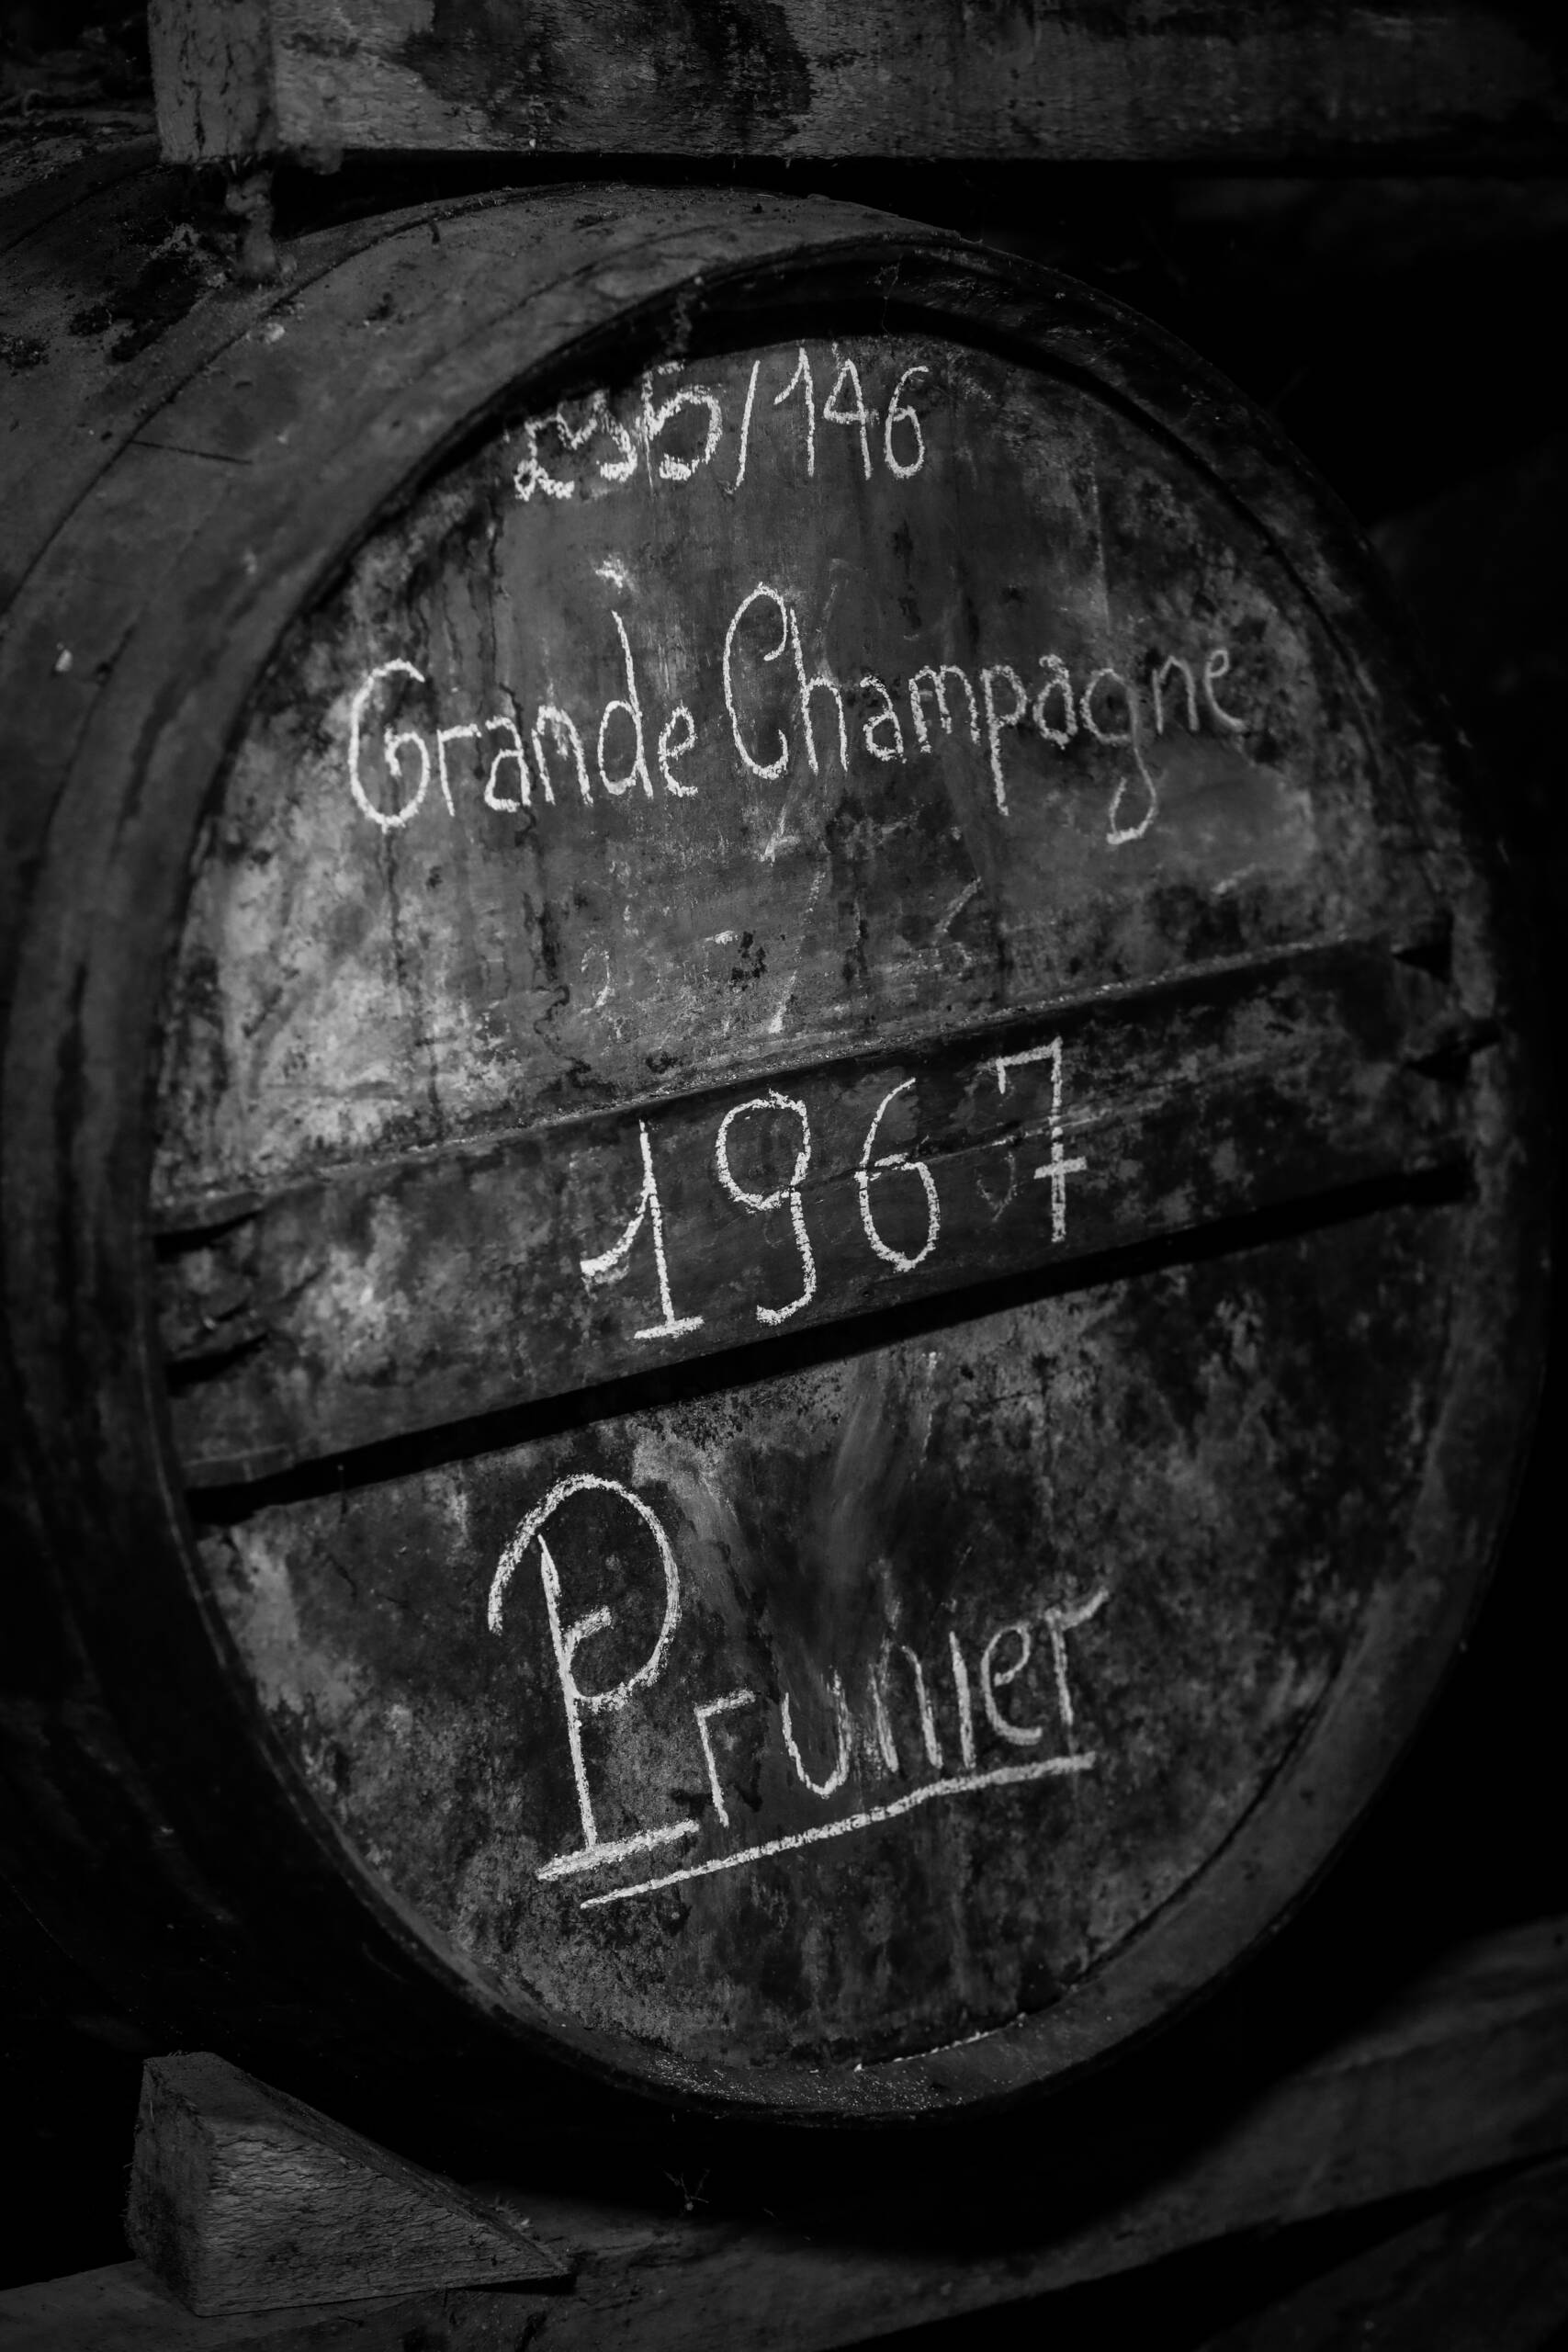 /146
Grande Champagne
1967
Prunier